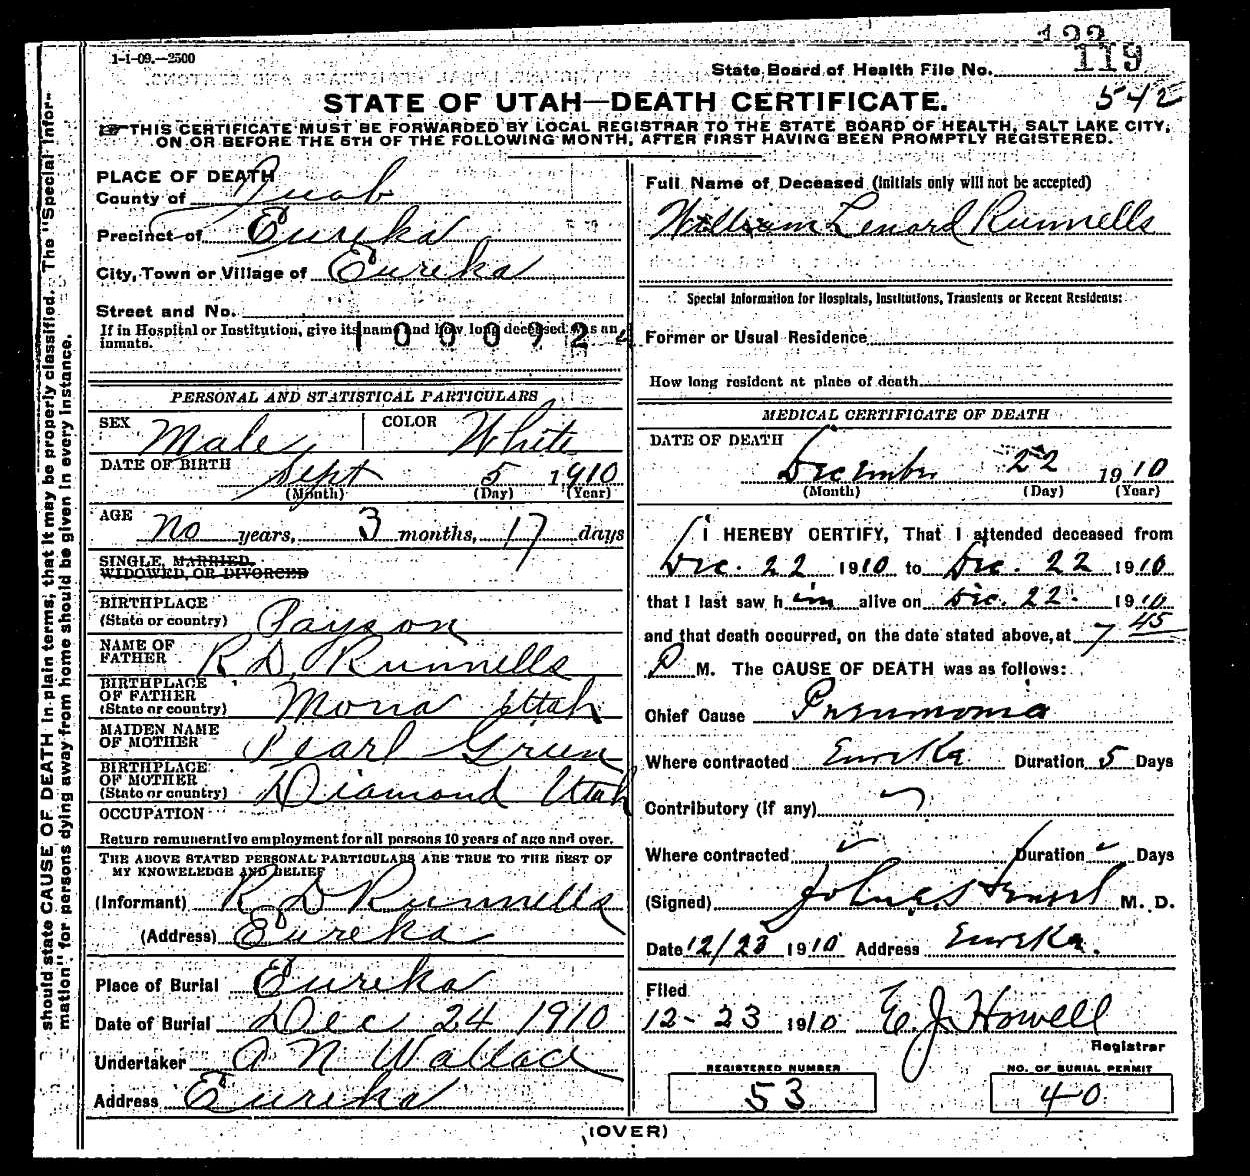 122
119
1-1-09.—2500
State Board of Health File No.
542
STATE OF UTAH—DEATH CERTIFICATE.
THIS CERTIFICATE MUST BE FORWARDED BY LOCAL REGISTRAR TO THE STATE BOARD OF HEALTH, SALT LAKE CITY,
ON OR BEFORE THE 5TH OF THE FOLLOWING MONTH, AFTER FIRST HAVING BEEN PROMPTLY REGISTERED.
should state CAUSE OF DEATH in plain terms, that it may be properly classified. The "Special Infor-
mation" for persons dying away from home should be given in every instance.
PLACE OF DEATH
County of Juab
Precinct of Eureka
City, Town or Village of Eureka
Street and No.
If in Hospital or Institution, give its name and how long deceased was an
inmate.
1000924
PERSONAL AND STATISTICAL PARTICULARS
SEX Male COLOR White
DATE OF BIRTH Sept 5 1910
(Month) (Day) (Year)
AGE No years, 3 months, 17 days
SINGLE, MARRIED,
WIDOWED, OR DIVORCED
BIRTHPLACE
(State or country) Payson
NAME OF
FATHER R D. Runnells
BIRTHPLACE
OF FATHER
(State or country) Mona Utah
MAIDEN NAME
OF MOTHER Pearl Green
BIRTHPLACE
OF MOTHER
(State or country) Diamond Utah
OCCUPATION
Return remunerative employment for all persons 10 years of age and over.
THE ABOVE STATED PERSONAL PARTICULARS ARE TRUE TO THE BEST OF
MY KNOWLEDGE AND BELIEF
(Informant) R D Runnells
(Address) Eureka
Place of Burial Eureka
Date of Burial Dec 24 1910
Undertaker A N Wallace
Address Eureka
Full Name of Deceased (Initials only will not be accepted)
William Lenard Runnells
Special Information for Hospitals, Institutions, Transients or Recent Residents:
Former or Usual Residence
How long resident at place of death
MEDICAL CERTIFICATE OF DEATH
DATE OF DEATH
December 22 1910
(Month) (Day) (Year)
I HEREBY CERTIFY, That I attended deceased from
Dec. 22 1910 to Dec. 22 1910
that I last saw him alive on Dec. 22. 1910
and that death occurred, on the date stated above, at 7 45
P M. The CAUSE OF DEATH was as follows:
Chief Cause Pneumonia
Where contracted Eureka Duration 5 Days
Contributory (if any)
Where contracted Duration Days
(Signed) M. D.
Date 12/23 1910 Address Eureka.
Filed
12-23 1910 E. J. Howell
Registrar
REGISTERED NUMBER NO. OF BURIAL PERMIT
53 40
(OVER)